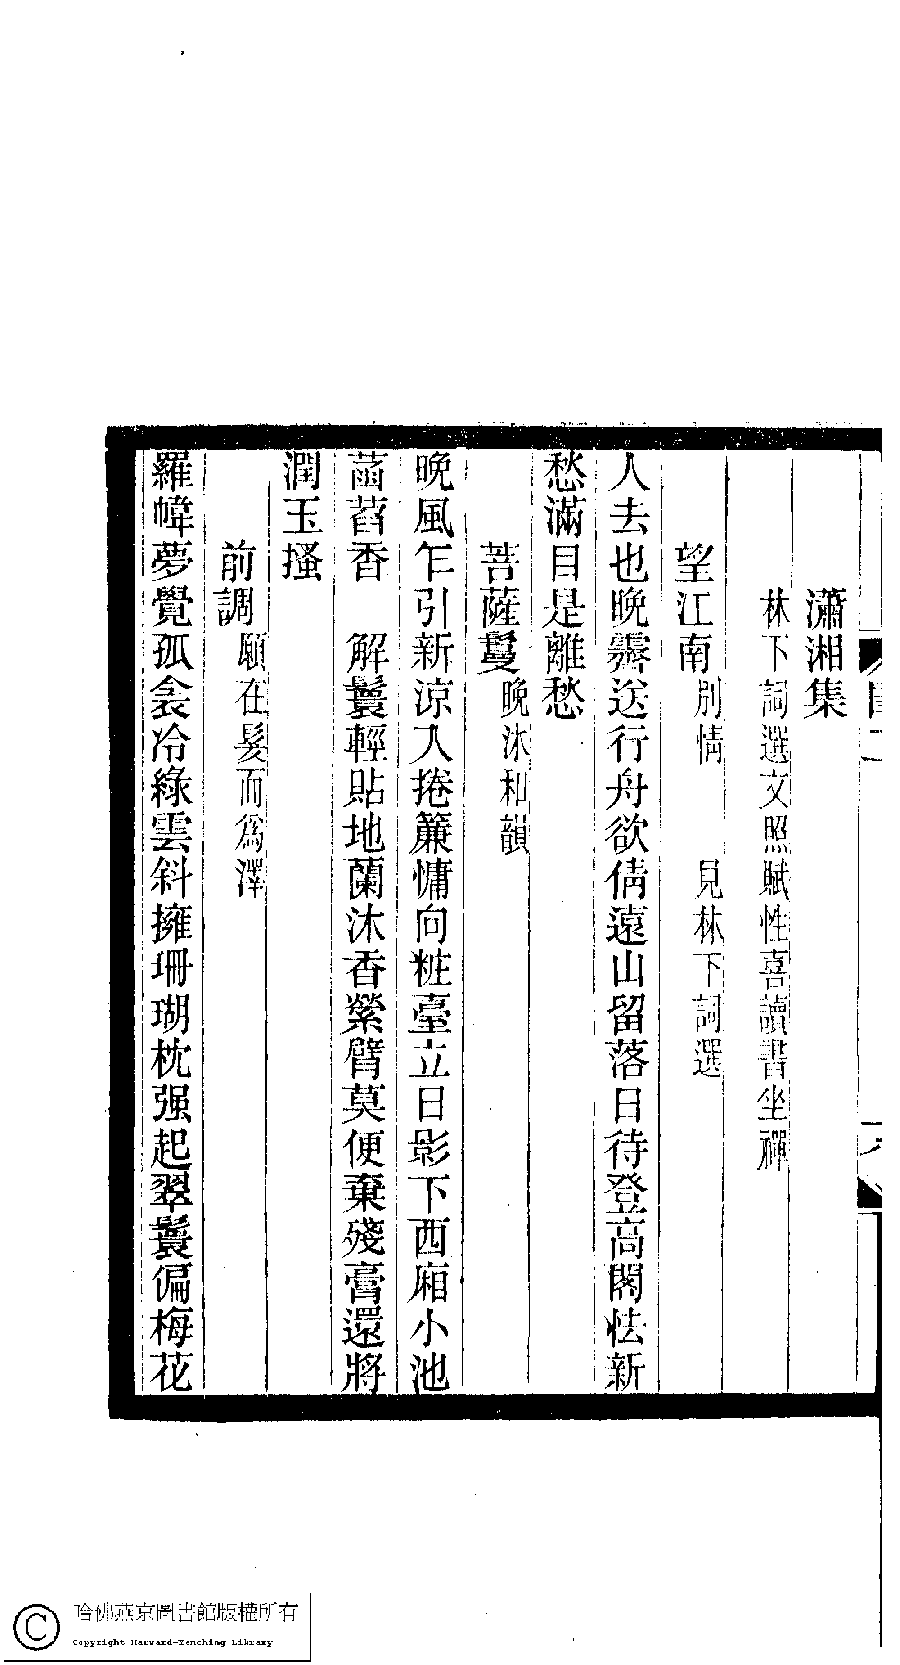 瀟湘集
林下詞選文照賦性喜讀書坐禪
望江南 別情 見林下詞選
人去也晚霽送行舟欲倩遠山留落日待登高閣怯新
愁滿目是離愁
菩薩鬘 晚沐和韻
晚風乍引新涼入捲簾慵向粧臺立日影下西廂小池
菡萏香 解鬟輕貼地蘭沐香縈臂莫便棄殘膏還將
潤玉搔
前調 願在髮而爲澤
羅幃夢覺孤衾冷綠雲斜擁珊瑚枕强起翠鬟偏梅花
哈佛燕京圖書館版權所有
Copyright Harvard-Yenching Library